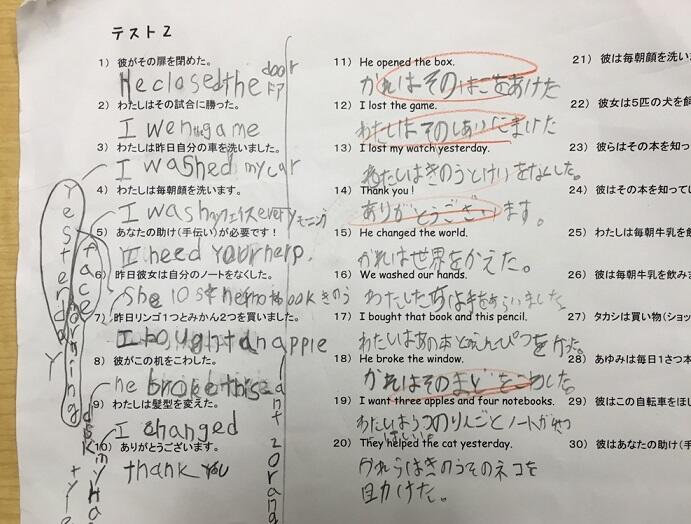 テスト2
1) 彼がその扉を閉めた。
He closed the door ドア
2) わたしはその試合に勝った。
I wen the game
3) わたしは昨日自分の車を洗いました。
I washed my car
yesterday
4) わたしは毎朝顔を洗います。
I wash myフェイスevery モーニング
face
morning
5) あなたの助け(手伝い)が必要です！
I need your herp.
6) 昨日彼女は自分のノートをなくした。
she lost her notebook きのう
7) 昨日リンゴ1つとみかん2つを買いました。
I bought an apple
ant 2 orang
8) 彼がこの机をこわした。
he broke this
desk
9) わたしは髪型を変えた。
I changed
my ha
10) ありがとうございます。
thank you
11) He opened the box.
かれはそのはこをあけた
12) I lost the game.
わたしはそのしあいにまけた
13) I lost my watch yesterday.
わたしはきのうとけいをなくした。
14) Thank you !
ありがとうございます。
15) He changed the world.
かれは世界をかえた。
16) We washed our hands.
わたしたちは手をあらいました。
17) I bought that book and this pencil.
わたしはあの本とえんぴつをかった。
18) He broke the window.
かれはそのまどをこわした。
19) I want three apples and four notebooks.
わたしは3つのりんごとノートが4つ
ほしい。
20) They helped the cat yesterday.
かれらはきのうそのネコを
目力けた。
21) 彼は毎朝顔を洗い
22) 彼女は5匹の犬を飼
23) 彼らはその本を知っ
24) 彼はその本を知ってい
25) わたしは毎朝牛乳を飲
26) 彼は毎朝牛乳を飲みま
27) タカシは買い物(ショッ
28) あゆみは毎日1さつ本
29) 彼はこの自転車をほし
30) 彼らはあなたの助け(手